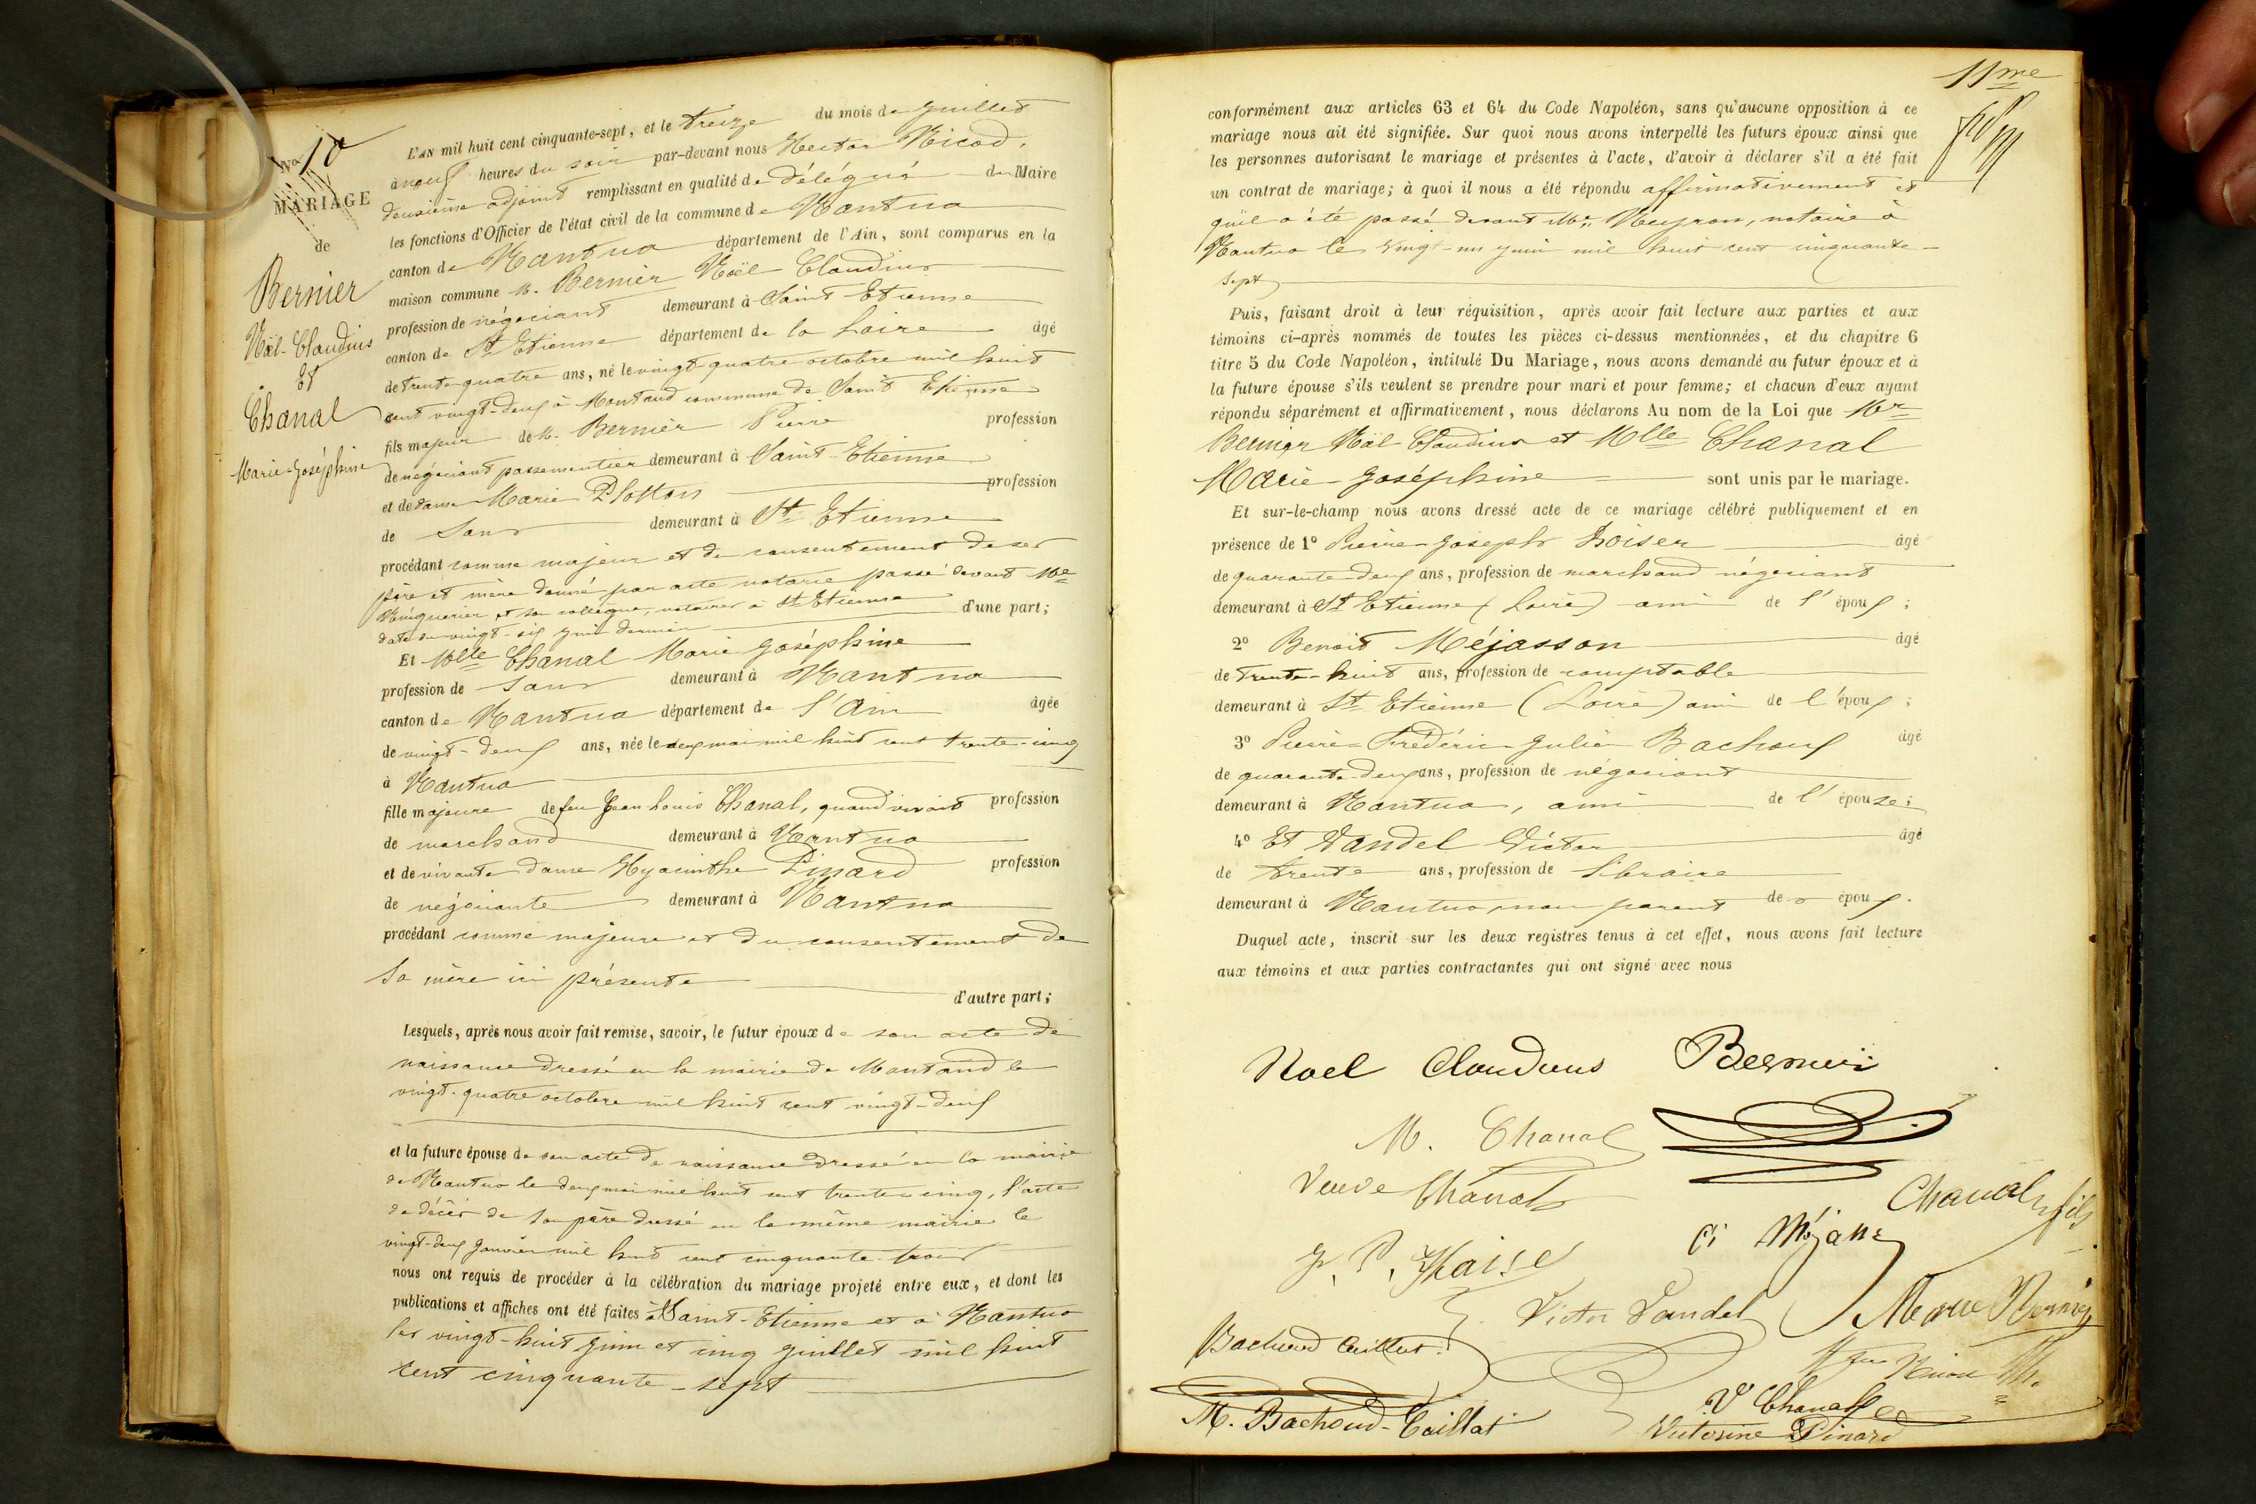 No 10
MARIAGE
de
Bernier
Noël-Claudius
Et
Chanal
Marie-Joséphine
L'AN mil huit cent cinquante-sept, et le treize du mois de Juillet
à neuf heures du soir par-devant nous Hector Nicod,
deuxième adjoint remplissant en qualité de délégué du Maire
les fonctions d'Officier de l'état civil de la commune de Nantua
canton de Nantua département de l'Ain, sont comparus en la
maison commune M. Bernier Noël Claudius
profession de négociant demeurant à Saint Etienne
canton de St Etienne département de la Loire âgé
de trente-quatre ans, né le vingt quatre octobre mil huit
cent vingt-deux à Montaud commune de Saint Etienne
fils majeur de M. Bernier Pierre profession
de négociant passementier demeurant à Saint-Etienne
et de dame Marie Plotton profession
de Sans demeurant à St Etienne
procédant comme majeur et du consentement de ses
père et mère donné par acte notarié passé devant Me
et son collègue, notaires à St Etienne d'une part;
date du vingt-six juin dernier
Et Melle Chanal Marie Joséphine
profession de Sans demeurant à Nantua
canton de Nantua département de l'Ain âgée
de vingt-deux ans, née le deux mai mil huit cent trente-cinq
à Nantua
fille majeure de feu Jean Louis Chanal, quand vivait profession
de marchand demeurant à Nantua
et de vivante dame Hyacinthe Pinard profession
de négociante demeurant à Nantua
procédant comme majeure et du consentement de
sa mère ici présente
d'autre part;
Lesquels, après nous avoir fait remise, savoir, le futur époux de son acte de
naissance dressé en la mairie de Montaud le
vingt-quatre octobre mil huit cent vingt-deux
et la future épouse de son acte de naissance dressé en la mairie
de Nantua le deux mai mil huit cent trente-cinq, l'acte
de décès de son père dressé en la même mairie le
vingt-deux Janvier mil huit cent cinquante-trois
nous ont requis de procéder à la célébration du mariage projeté entre eux, et dont les
publications et affiches ont été faites à Saint-Etienne et à Nantua
les vingt-huit Juin et cinq Juillet mil huit
cent cinquante-sept
11me
conformément aux articles 63 et 64 du Code Napoléon, sans qu'aucune opposition à ce
mariage nous ait été signifiée. Sur quoi nous avons interpellé les futurs époux ainsi que
les personnes autorisant le mariage et présentes à l'acte, d'avoir à déclarer s'il a été fait
un contrat de mariage; à quoi il nous a été répondu affirmativement et
qu'il a été passé devant Me Neyron, notaire à
Nantua le vingt-un juin mil huit cent cinquante-
sept
Puis, faisant droit à leur réquisition, après avoir fait lecture aux parties et aux
témoins ci-après nommés de toutes les pièces ci-dessus mentionnées, et du chapitre 6
titre 5 du Code Napoléon, intitulé Du Mariage, nous avons demandé au futur époux et à
la future épouse s'ils veulent se prendre pour mari et pour femme; et chacun d'eux ayant
répondu séparément et affirmativement, nous déclarons Au nom de la Loi que Mr
Bernier Noël Claudius et Melle Chanal
Marie-Joséphine sont unis par le mariage.
Et sur-le-champ nous avons dressé acte de ce mariage célébré publiquement et en
présence de 1º Pierre-Joseph âgé
de quarante-deux ans, profession de marchand négociant
demeurant à St Etienne (Loire) ami de l'époux;
2º Benoit Méjasson âgé
de trente-huit ans, profession de comptable
demeurant à St Etienne (Loire) ami de l'époux;
3º Pierre-Frédéric-Julien Bachoux âgé
de quarante-deux ans, profession de négociant
demeurant à Nantua, ami de l'épouse;
4º Et Vandel Victor âgé
de trente ans, profession de libraire
demeurant à Nantua, non parent des époux.
Duquel acte, inscrit sur les deux registres tenus à cet effet, nous avons fait lecture
aux témoins et aux parties contractantes qui ont signé avec nous
Noel Claudius Bernier
M. Chanal
Veuve Chanal
Chanal fils
Victor Vandel
Marie Bernier
M. Bachoud-Caillat
V Chanal
Victorine Pinard